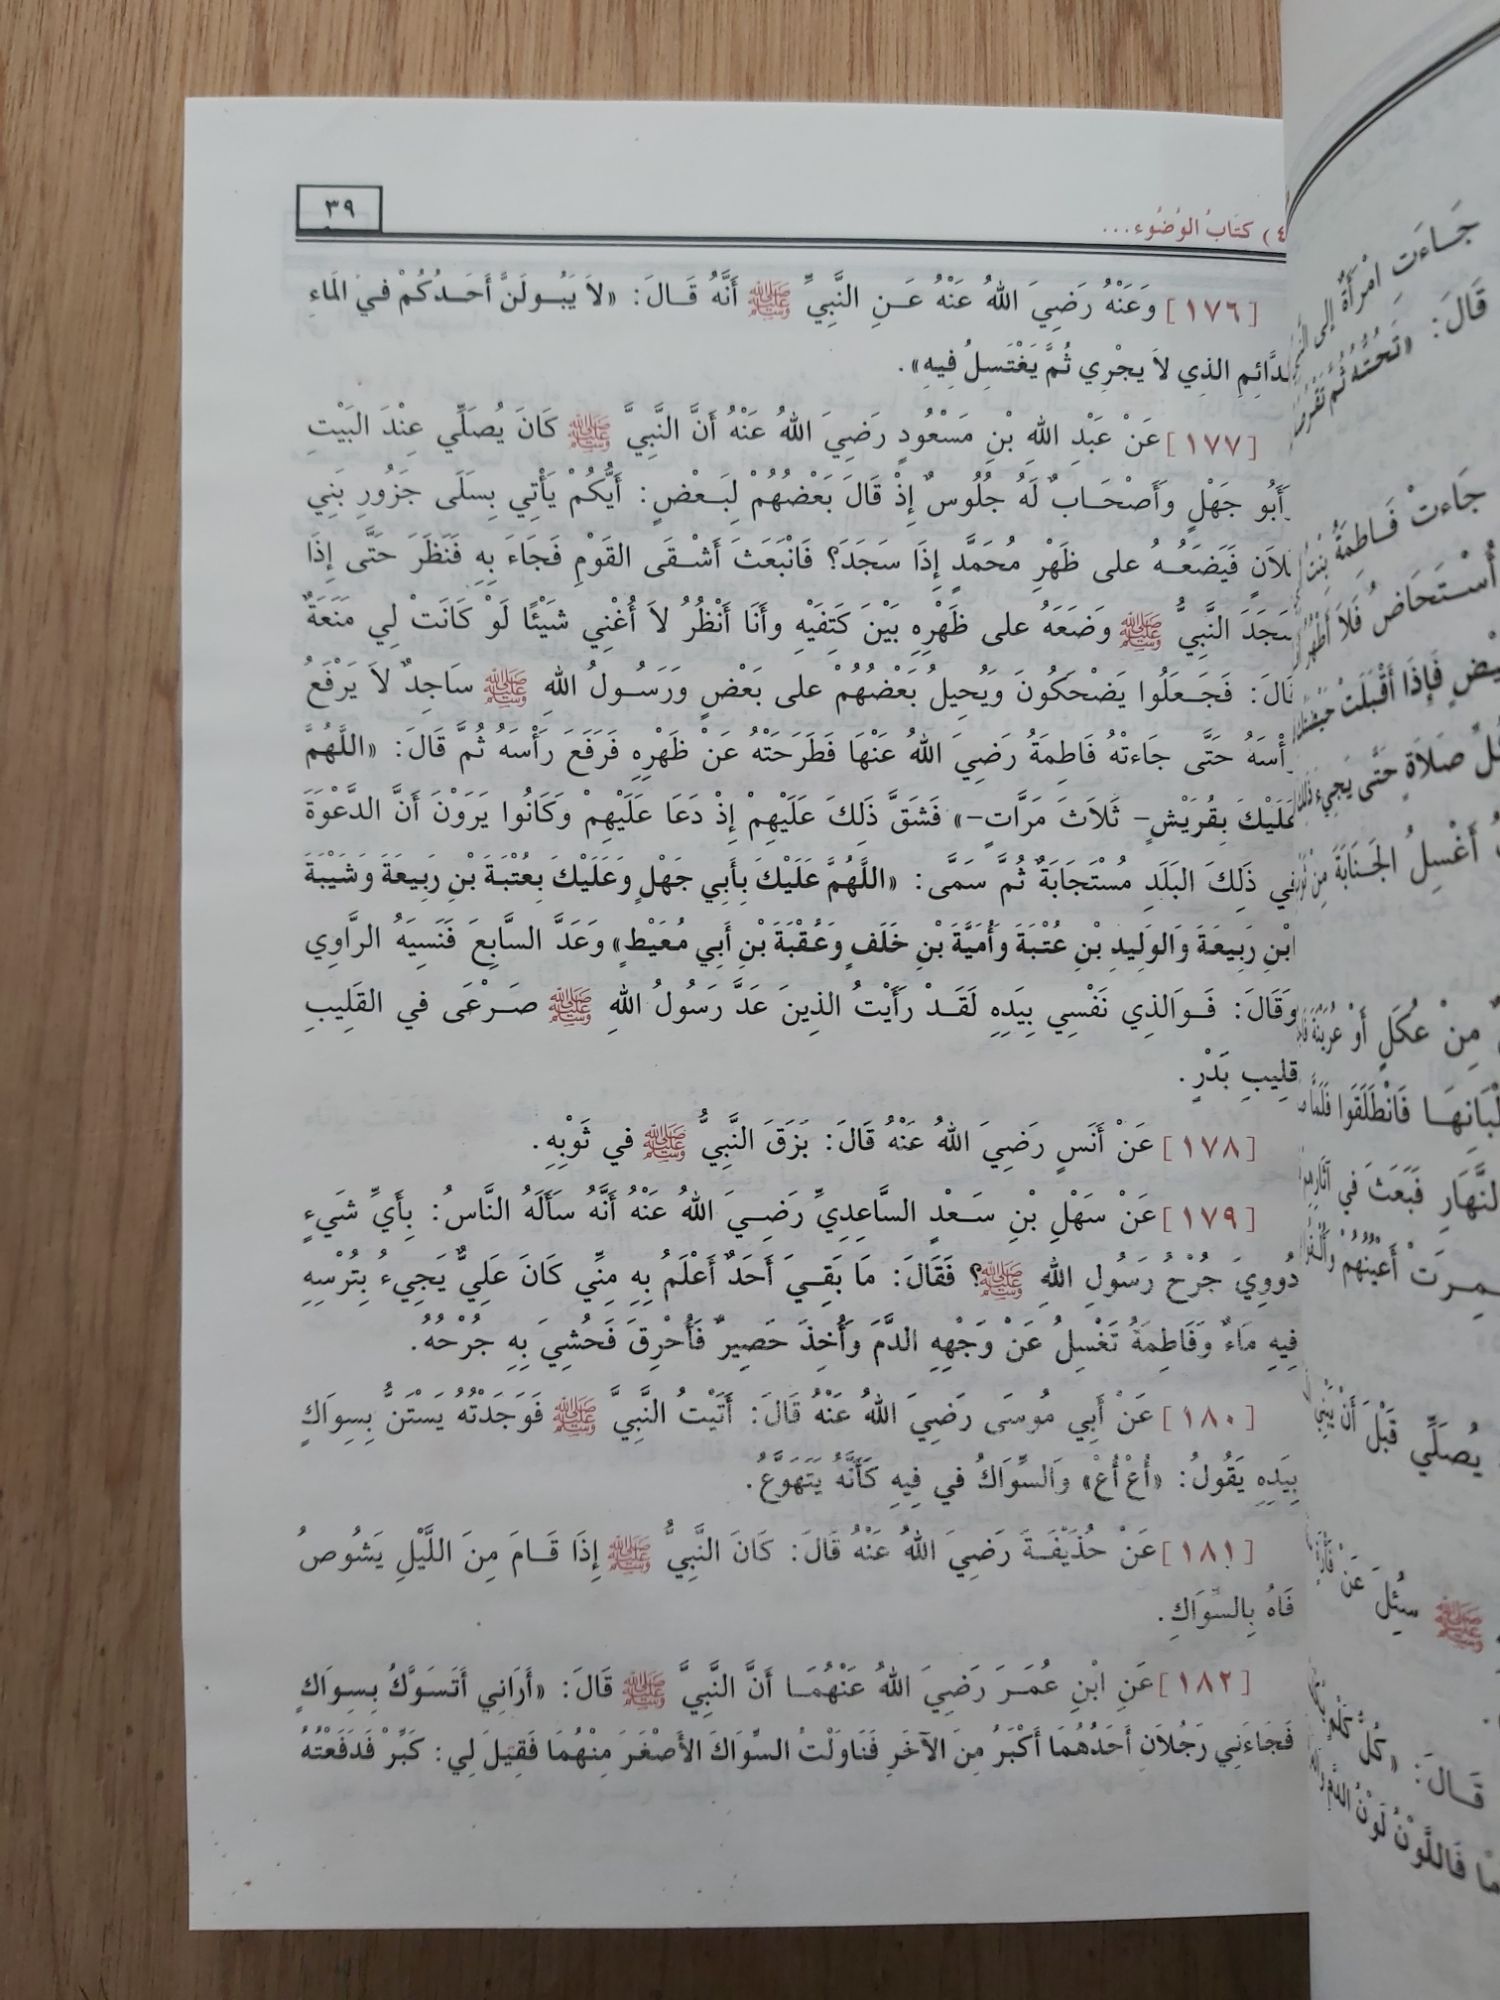 ٣٩
٤) كتَابُ الوُضُوء...
[١٧٦] وَعَنْهُ رَضِيَ اللهُ عَنْهُ عَـنِ النَّبِيِّ ﷺ أَنَّهُ قَـالَ: «لاَ يَبُـولَنَّ أَحَـدُكُمْ فيْ المَاءِ
لدَّائِمِ الذِي لاَ يجْرِي ثُمَّ يَغْتَسِلُ فِيهِ».
[١٧٧] عَنْ عَبْدِ اللهِ بْنِ مَسْعُودٍ رَضِيَ اللهُ عَنْهُ أَنَّ النَّبِيَّ ﷺ كَانَ يُصَلِّي عِنْدَ البَيْتِ
أَبُو جَهْلٍ وَأَصْحَـابٌ لَهُ جُلُوسٌ إِذْ قَالَ بَعْضُهُمْ لِبَـعْضٍ: أَيُّكُمْ يَأْتِي بِسَلَى جَزُورِ بَنِي
لاَنٍ فَيَضَعُـهُ على ظَهْرِ مُحَمَّدٍ إِذَا سَجَدَ؟ فَانْبَعَثَ أَشْـقَى القَوْمِ فَجَاءَ بِهِ فَنَظَرَ حَتَّى إِذَا
سَجَدَ النَّبِيُّ ﷺ وَضَعَهُ على ظَهْرِهِ بَيْنَ كَتِفَيْهِ وأَنَا أَنْظُرُ لاَ أُغْنِي شَيْئًا لَوْ كَانَتْ لِي مَنَعَةٌ
قَالَ: فَجَـعَلُوا يَضْحَكُونَ وَيُحِيلُ بَعْضُهُمْ على بَعْضٍ وَرَسُـولُ اللهِ ﷺ سَاجِدٌ لاَ يَرْفَعُ
رَأْسَهُ حَتَّى جَاءَتْهُ فَاطِمَةُ رَضِيَ اللهُ عَنْهَا فَطَرَحَتْهُ عَنْ ظَهْرِهِ فَرَفَعَ رَأْسَهُ ثُمَّ قَالَ: «اللَّهُمَّ
عَلَيْكَ بِقُرَيْشٍ- ثَلاَثَ مَرَّاتٍ-» فَشَقَّ ذَلِكَ عَلَيْهِمْ إِذْ دَعَا عَلَيْهِمْ وَكَانُوا يَرَوْنَ أَنَّ الدَّعْوَةَ
فِي ذَلِكَ البَلَدِ مُسْتَجَابَةٌ ثُمَّ سَمَّى: «اللَّهُمَّ عَلَيْكَ بِأَبِي جَهْلٍ وَعَلَيْكَ بِعُتْبَةَ بْنِ رَبِيعَةَ وَشَيْبَةَ
ابْنِ رَبِيعَةَ وَالوَلِيدِ بْنِ عُتْبَةَ وَأُمَيَّةَ بْنِ خَلَفٍ وَعُقْبَةَ بْنِ أَبِي مُعَيْطٍ» وَعَدَّ السَّابِعَ فَنَسِيَهُ الرَّاوِي
وَقَالَ: فَـوَالذِي نَفْسِي بِيَدِهِ لَقَـدْ رَأَيْتُ الذِينَ عَدَّ رَسُولُ اللهِ ﷺ صَـرْعَى في القَلِيبِ
قلِيبِ بَدْرٍ.
[١٧٨] عَنْ أَنَسٍ رَضِيَ اللهُ عَنْهُ قَالَ: بَزَقَ النَّبِيُّ ﷺ في ثَوْبِهِ.
[١٧٩] عَنْ سَهْلِ بْنِ سَـعْدٍ السَّاعِدِيِّ رَضِـيَ اللهُ عَنْهُ أَنَّهُ سَأَلَهُ النَّاسُ: بِأَيِّ شَيءٍ
دُووِيَ جُرْحُ رَسُولِ اللهِ ﷺ؟ فَقَالَ: مَا بَقِـيَ أَحَدٌ أَعْلَمُ بِهِ مِنِّي كَانَ عَلِيٌّ يَجِيءُ بِتُرْسِهِ
فِيهِ مَاءٌ وَفَاطِمَةُ تَغْسِلُ عَنْ وَجْهِهِ الدَّمَ وَأُخِذَ حَصِيرٌ فَأُحْرِقَ فَحُشِيَ بِهِ جُرْحُهُ.
[١٨٠] عَنْ أَبِي مُوسَى رَضِيَ اللهُ عَنْهُ قَالَ: أَتَيْتُ النَّبِيَّ ﷺ فَوَجَدْتُهُ يَسْتَنُّ بِسِوَاكٍ
بِيَدِهِ يَقُولُ: «أُعْ أُعْ» وَالسِّوَاكُ في فِيهِ كَأَنَّهُ يَتَهَوَّعُ.
[١٨١] عَنْ حُذَيْفَـةَ رَضِيَ اللهُ عَنْهُ قَالَ: كَانَ النَّبِيُّ ﷺ إِذَا قَـامَ مِنَ اللَّيْلِ يَشُوصُ
فَاهُ بِالسِّوَاكِ.
[١٨٢] عَنِ ابْنِ عُمَـرَ رَضِيَ اللهُ عَنْهُمَـا أَنَّ النَّبِيَّ ﷺ قَالَ: «أَرَانِي أَتَسَوَّكُ بِسِوَاكٍ
فَجَاءَنِي رَجُلاَنِ أَحَدُهُمَا أَكْبَرُ مِنَ الآخَرِ فَنَاوَلْتُ السِّوَاكَ الأَصْغَرَ مِنْهُمَا فَقِيلَ لِي: كَبِّرْ فَدَفَعْتُهُ
جَـاءَتِ امْرَأَةٌ إِلى
قَالَ: «تَحُتُّهُ ثُمَّ
جَاءَتْ فَـاطِمَةُ بِنْتُ
أُسْتَحَاضُ فَلاَ أَطْهُرُ
فَإِذَا أَقْبَلَتْ
صَلاَةٍ حَتَّى يَجِيءَ
أَغْسِلُ الجَنَابَةَ مِنْ
مِنْ عُكْلٍ أَوْ عُرَيْنَةَ
فَانْطَلَقُوا فَلَمَّا
النَّهَارِ فَبَعَثَ فِي آثَارِهِمْ
أَعْيُنُهُمْ
يُصَلِّي قَبْلَ أَنْ
ﷺ سُئِلَ عَنْ
قَـالَ: «كُلُّ
فَاللَّوْنُ لَوْنُ الدَّمِ